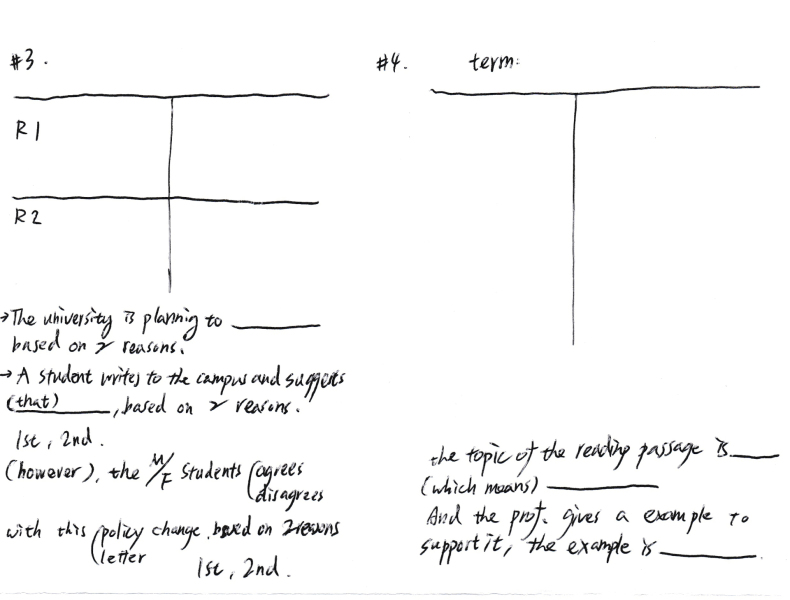 #3.
R1
R2
→The university is planning to ______
based on 2 reasons.
→ A student writes to the campus and suggests
(that) ______, based on 2 reasons.
1st, 2nd.
(however), the M/F students (agrees
disagrees
with this (policy change, based on 2 reasons
letter 1st, 2nd.
#4. term:
the topic of the reading passage is ____
(which means) ______
And the prof. gives a example to
support it, the example is ______.